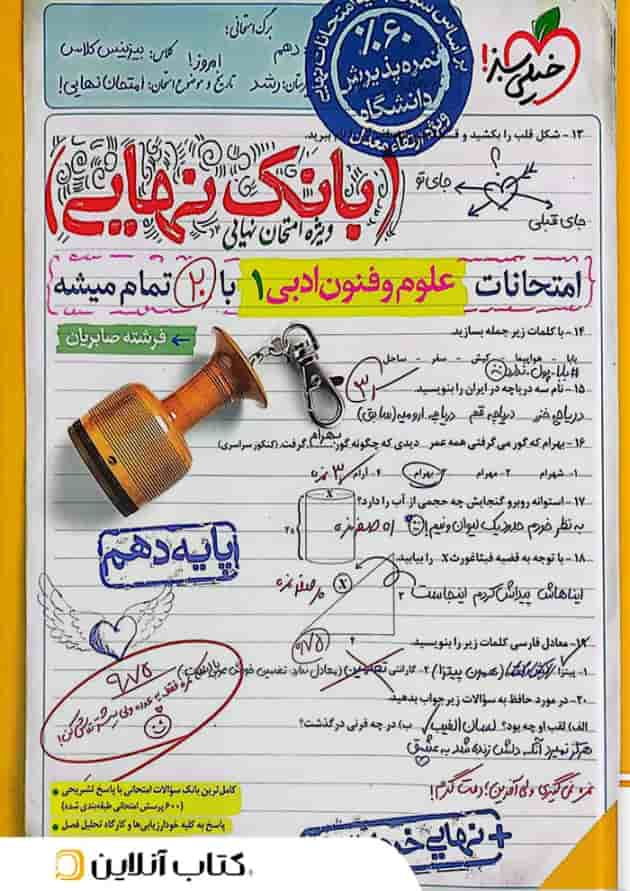 برگ امتحانی:
دهم
کلاس: بیزینس کلاس
امروز!
رشد
تاریخ و موضوع امتحان: امتحان نهایی!
٪۶۰
نمره پذیرش
دانشگاه
ویژه ارتقاء معدل
خیلی سبز!
۱۳- شکل قلب را بکشید و
ببرید.
؟
جای تو
جای قبلی
(بانک نهایی)
ویژه امتحان نهایی
امتحانات علوم و فنون ادبی ۱ با ۲۰ تمام میشه
فرشته صابریان
۱۴- با کلمات زیر جمله بسازید.
بابا - هواپیما - کیش - سفر - ساحل
#بابا-پول-ندارد
۱۵- نام سه دریاچه در ایران را بنویسید.
دریاچه خزر دریاچه قم دریاچه ارومیه (سابق)
۱۶- بهرام که گور می‌گرفتی همه عمر دیدی که چگونه گور بهرام گرفت. (کنکور سراسری)
۱- شهرام ۲- مهرام ۳- بهرام ۴- آرام
۱۷- استوانه روبرو گنجایش چه حجمی از آب را دارد؟
به نظر خودم حدود یک لیوان و نیم!
X
۲۵
۱۸- با توجه به قضیه فیثاغورث X را بیابید.
ایناهاش پیداش کردم اینجاست
X
۲
۴
پایه دهم
۱۹- معادل فارسی کلمات زیر را بنویسید.
۱- پیتزا (همون پیتزا) ۲- گارانتی تضمین
۹/۷۵
۲۰- در مورد حافظ به سؤالات زیر جواب بدهید.
الف) لقب او چه بود؟ لسان الغیب ب) در چه قرنی درگذشت؟
هرگز نمیرد آنکه دلش زنده شد به عشق
نمره نمی‌گیری ولی آفرین! دمت گرم!
کامل‌ترین بانک سؤالات امتحانی با پاسخ تشریحی
(۶۰۰ پرسش امتحانی طبقه‌بندی شده)
پاسخ به کلیه خودارزیابی‌ها و کارگاه تحلیل فصل
+ نهایی
کتاب آنلاین